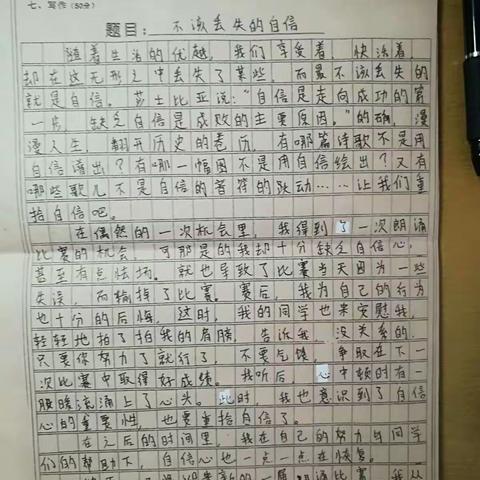 七、写作(50分)
题目:不该丢失的自信
随着生活的优越,我们享受着,快活着,
却在这无形之中丢失了某些,而最不该丢失的
就是自信。莎士比亚说:“自信是走向成功的第
一步,缺乏自信是成败的主要原因。”的确,漫
漫人生,翻开历史的卷历,有哪篇诗歌不是用
自信谱出?有哪一幅图不是用自信绘出?又有
哪些歌儿不是自信的音符的跃动……让我们重
拾自信吧。
在偶然的一次机会里,我得到了一次朗诵
比赛的机会,可那是的我却十分缺乏自信心,
甚至有点怯场。就也导致了比赛当天因为一些
失误,而输掉了比赛。赛后,我为自己的行为
也十分的后悔,这时,我的同学也来安慰我,
轻轻地拍了拍我的肩膀,告诉我,没关系的,
只要你努力了就行了,不要气馁,争取在下一
次比赛中取得好成绩。我听后,心中顿时有一
股暖流涌上了心头。此时,我也意识到了自信
心的重要性,也要重拾自信了。
在之后的时间里,我在自己的努力与同学
们的帮助下,自信心也一点一点在恢复。